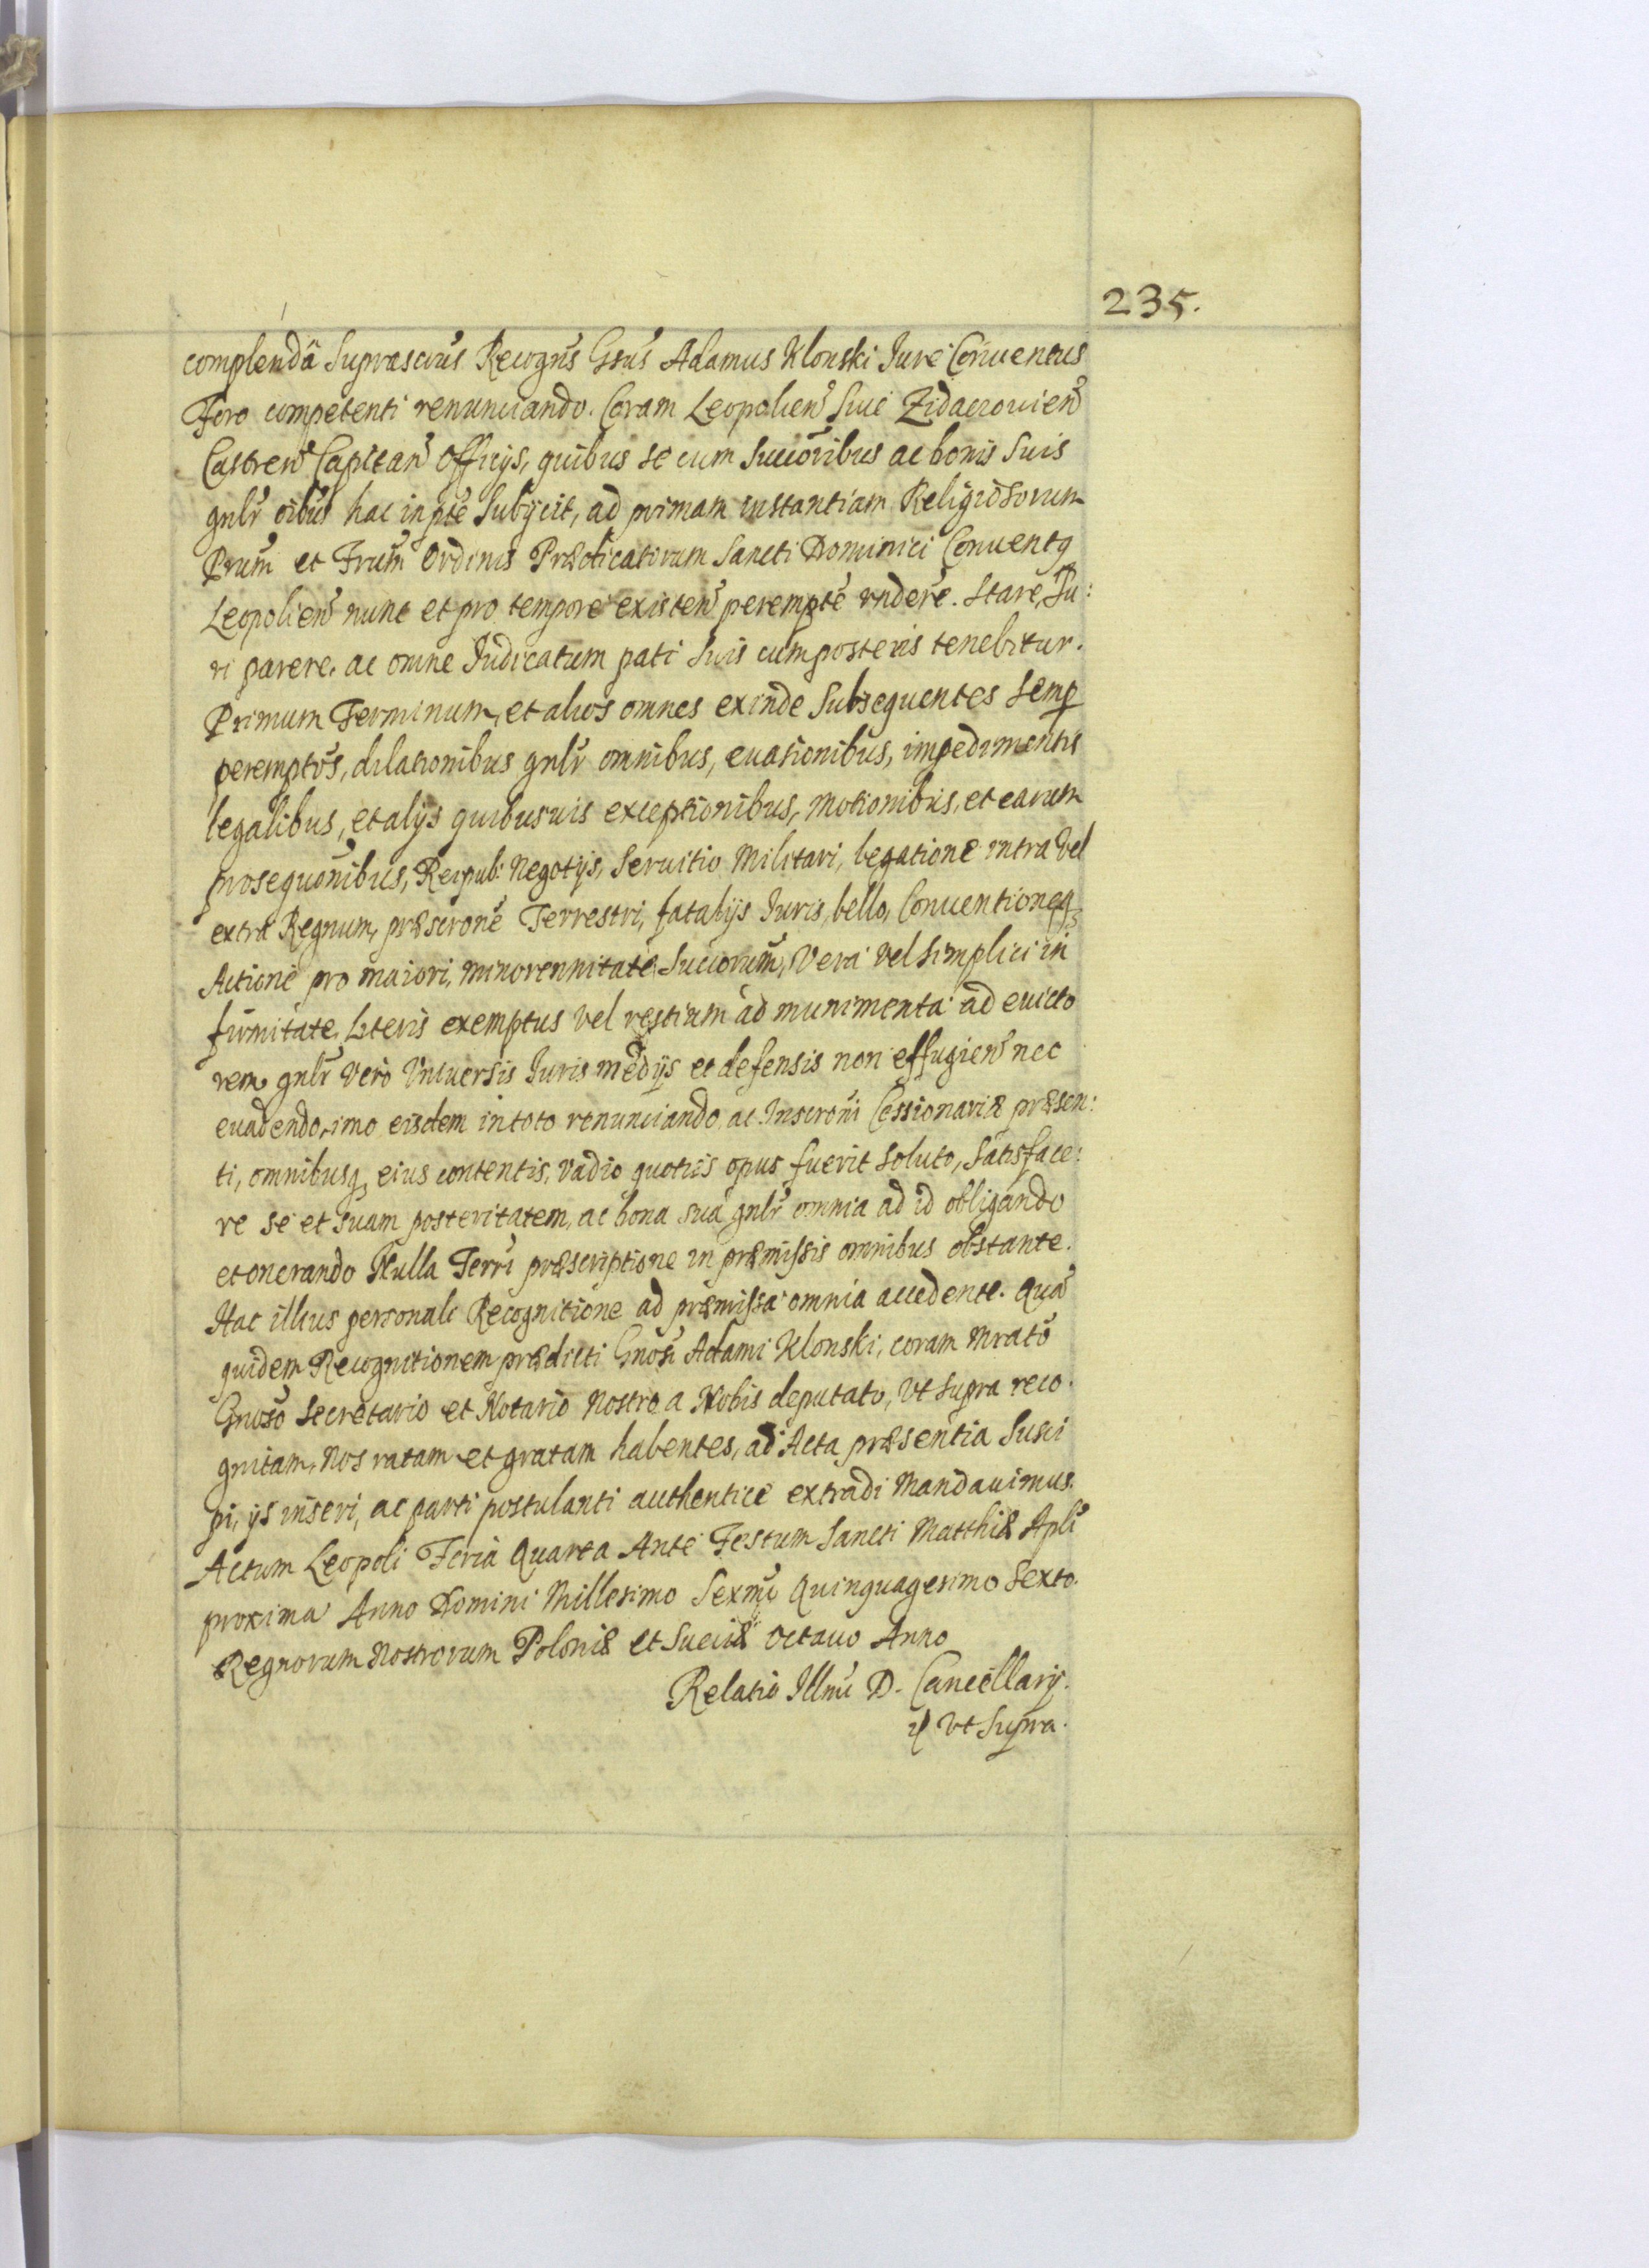 235.
complendâ Suprascrus Recogns Gsus Adamus Klonski Iure Conuentus
Foro competenti renunciando. Coram Leopolien Siue Zidaczouien
Castren Capitan Officijs, quibus se cum Succoribus ac bonis Suis
gnlr oibus hac inpte Subijcit, ad primam instantiam Religiosorum
Prum et Frum Ordinis Prædicatorum Sancti Dominici Conuentq
Leopolien nunc et pro tempore existen perempte rndere. Stare, Iu:
ri parere, ac omne Iudicatum pati Suis cum posteris tenebitur.
Primum Terminum, et alios omnes exinde Subsequentes Semp
peremptos, dilationibus gnlr omnibus, euasionibus, impedimentis
legalibus, et alijs quibusuis exceptionibus, Motionibus, et earum
prosequonibus, Reipub: Negotijs, Seruitio Militari, legatione intra Vel
extra Regnum, præscrone Terrestri, fatalijs Iuris, bello, Conuentioneq
Actione pro maiori, minorennitate Succorum, Vera Vel Simplici in
firmitate, Literis exemptus vel restium ad munimenta ad euicto
rem gnlr Vero Vniuersis Iuris medijs et defensis non effugien nec
euadendo, imo eisdem in toto renunciando, ac Inscroni Cessionariæ præsen:
ti, omnibusq eius contentis, Vadio quotiis opus fuerit Soluto, Satisface:
re se et suam posteritatem, ac bona sua gnlr omnia ad id obligando
et onerando Nulla Terri præscriptione in præmissis omnibus obstante.
Hac illius personali Recognitione ad præmissa omnia accedente. Qua
quidem Recognitionem prædicti Gnosi Adami Klonski, coram Mrato
Gnoso Secretario et Notario Nostro a Nobis deputato, Vt Supra reco.
gnitam, Nos ratam et gratam habentes, ad Acta præsentia Susci
pi, ijs inseri, ac parti postulanti authentice extradi Mandauimus.
Actum Leopoli Feria Quarta Ante Festum Sancti Matthiæ Apli
proxima Anno Domini Millesimo Sexmo Quinquagesimo Sexto.
Regnorum Nostrorum Poloniæ et Sueciæ Octauo Anno
Relatio Illmi D. Cancellarij.
Vt Supra.